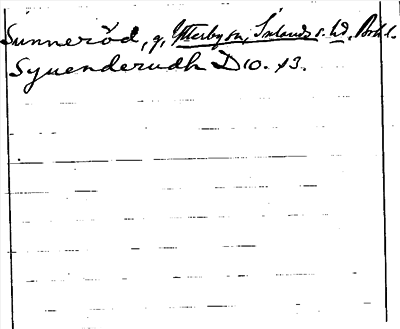 Sunneröd, g, Ytterby sn, Inlands s. hd, Boh l.
Syuenderudh D 10. 43.